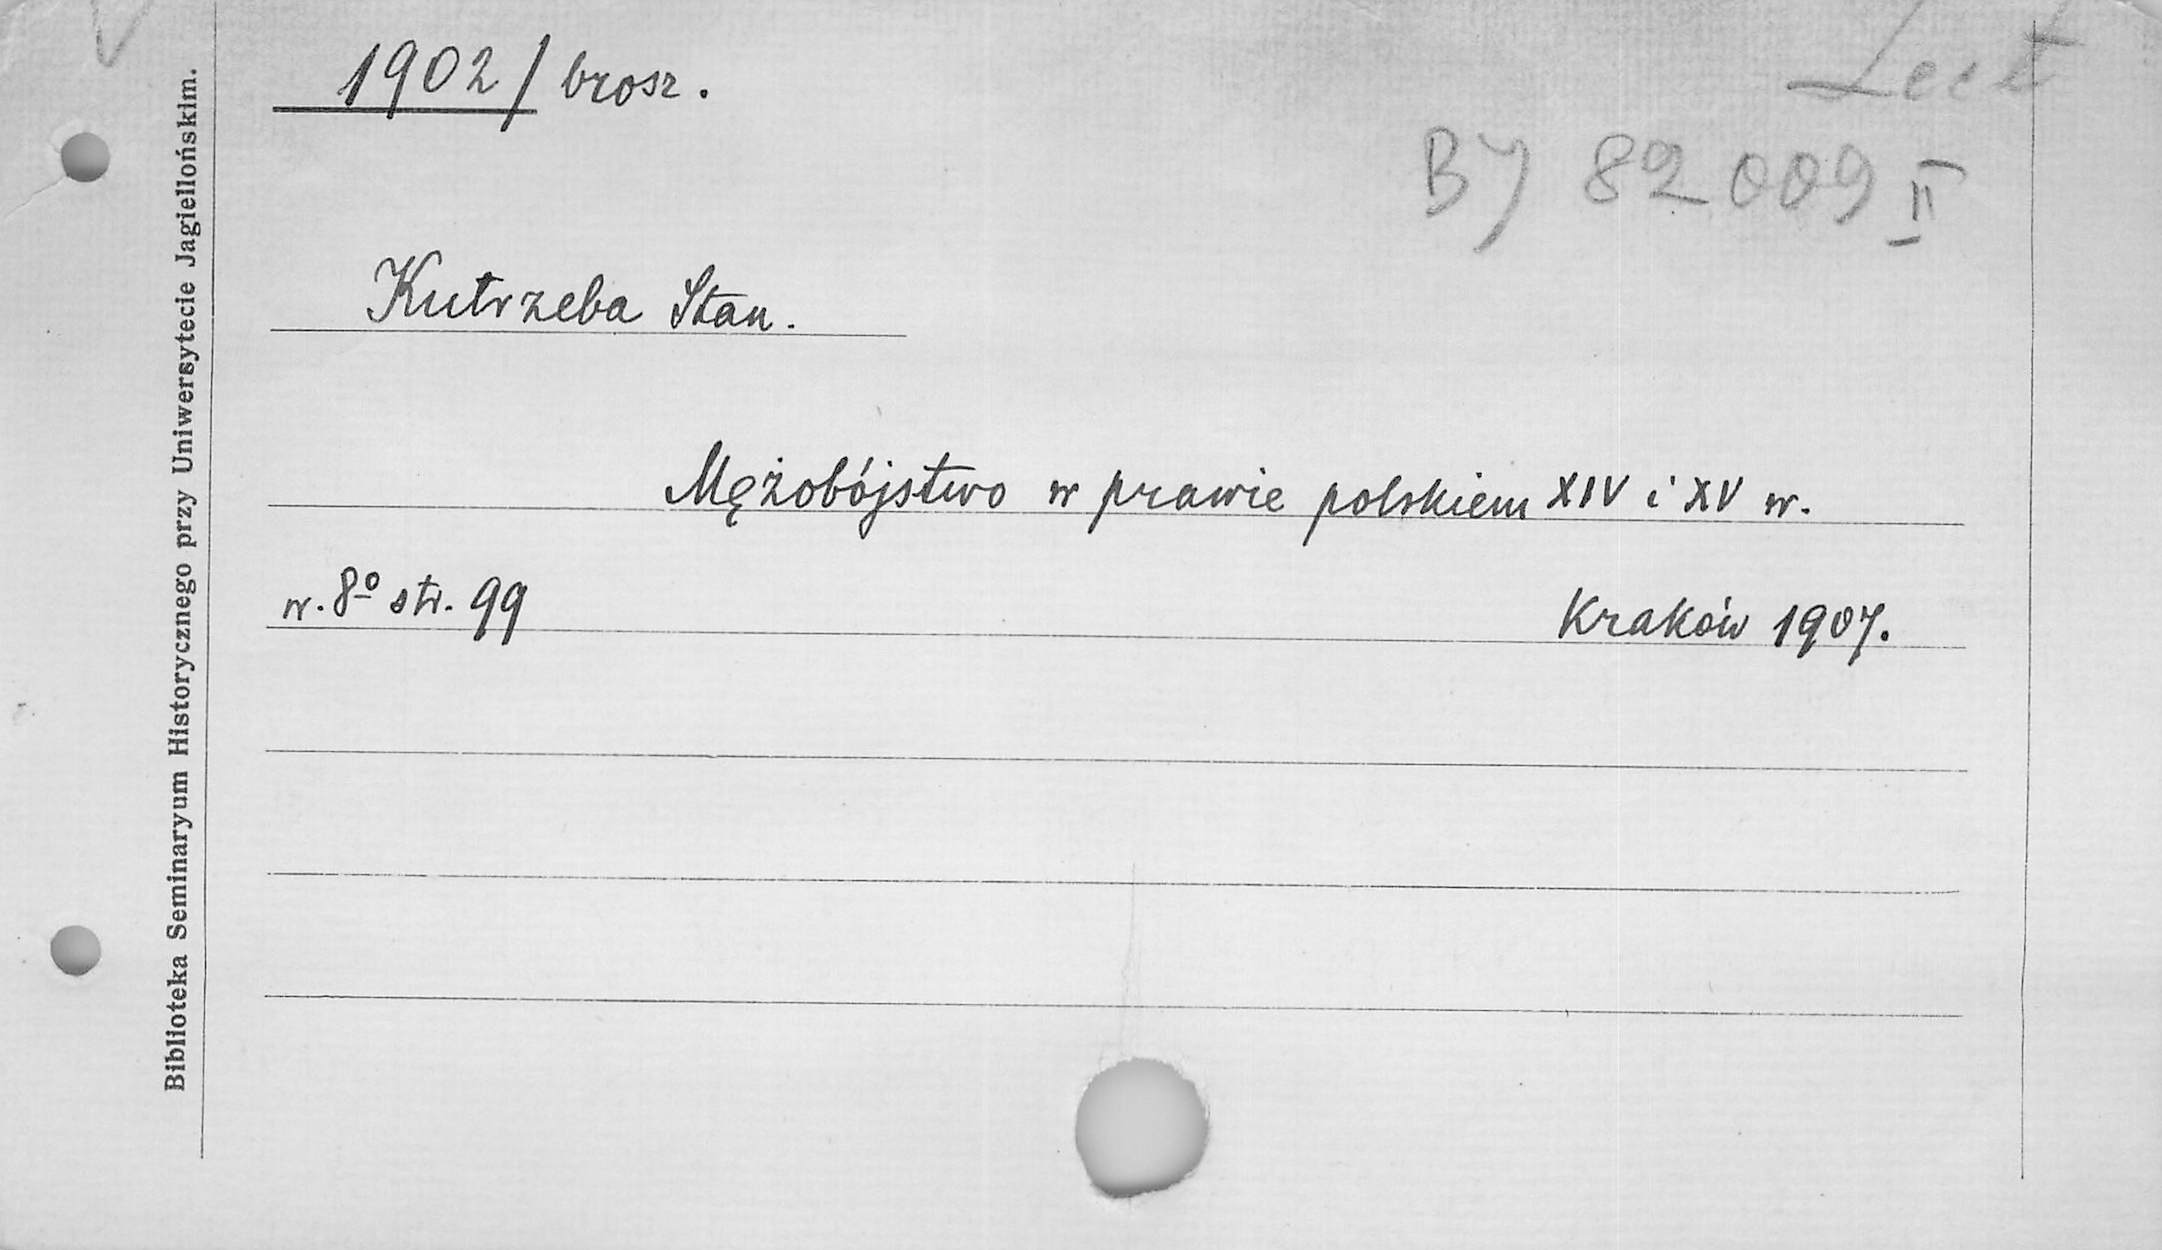 1902/brosz.
BJ 82009 II
Kutrzeba Stan.
Mężobójstwo w prawie polskiem XIV i XV w.
w. 8º str. 99 Kraków 1907.
Biblioteka Seminaryum Historycznego przy Uniwersytecie Jagiellońskim.